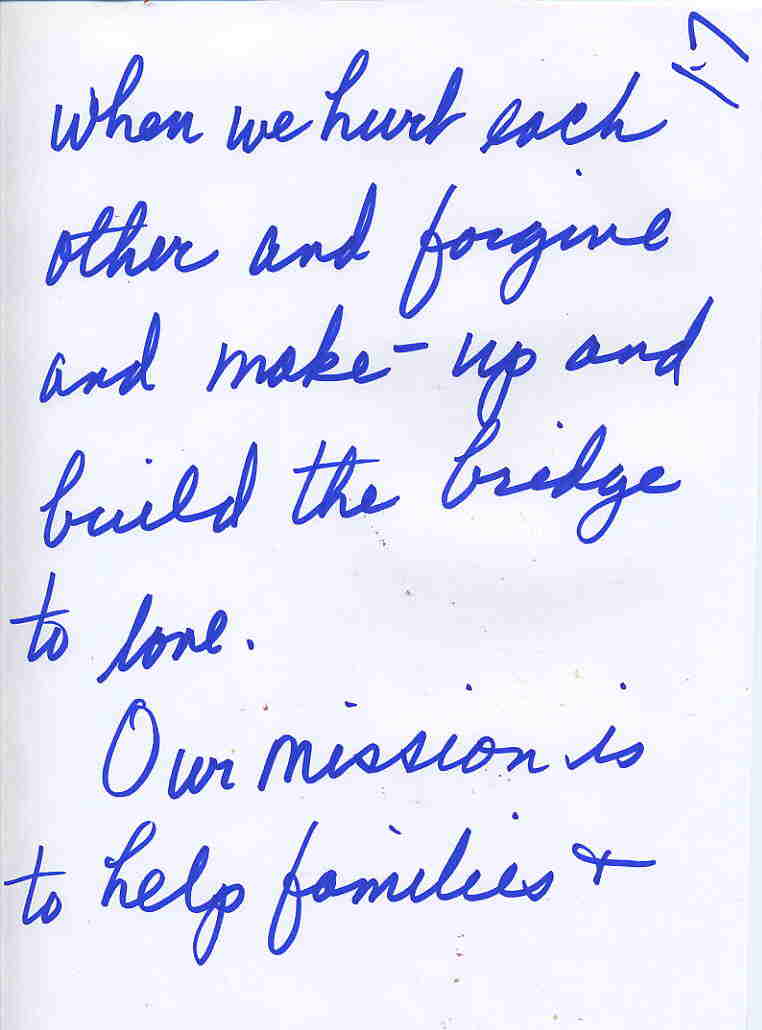 17
when we hurt each
other and forgive
and make-up and
build the bridge
to love.
Our mission is
to help families +